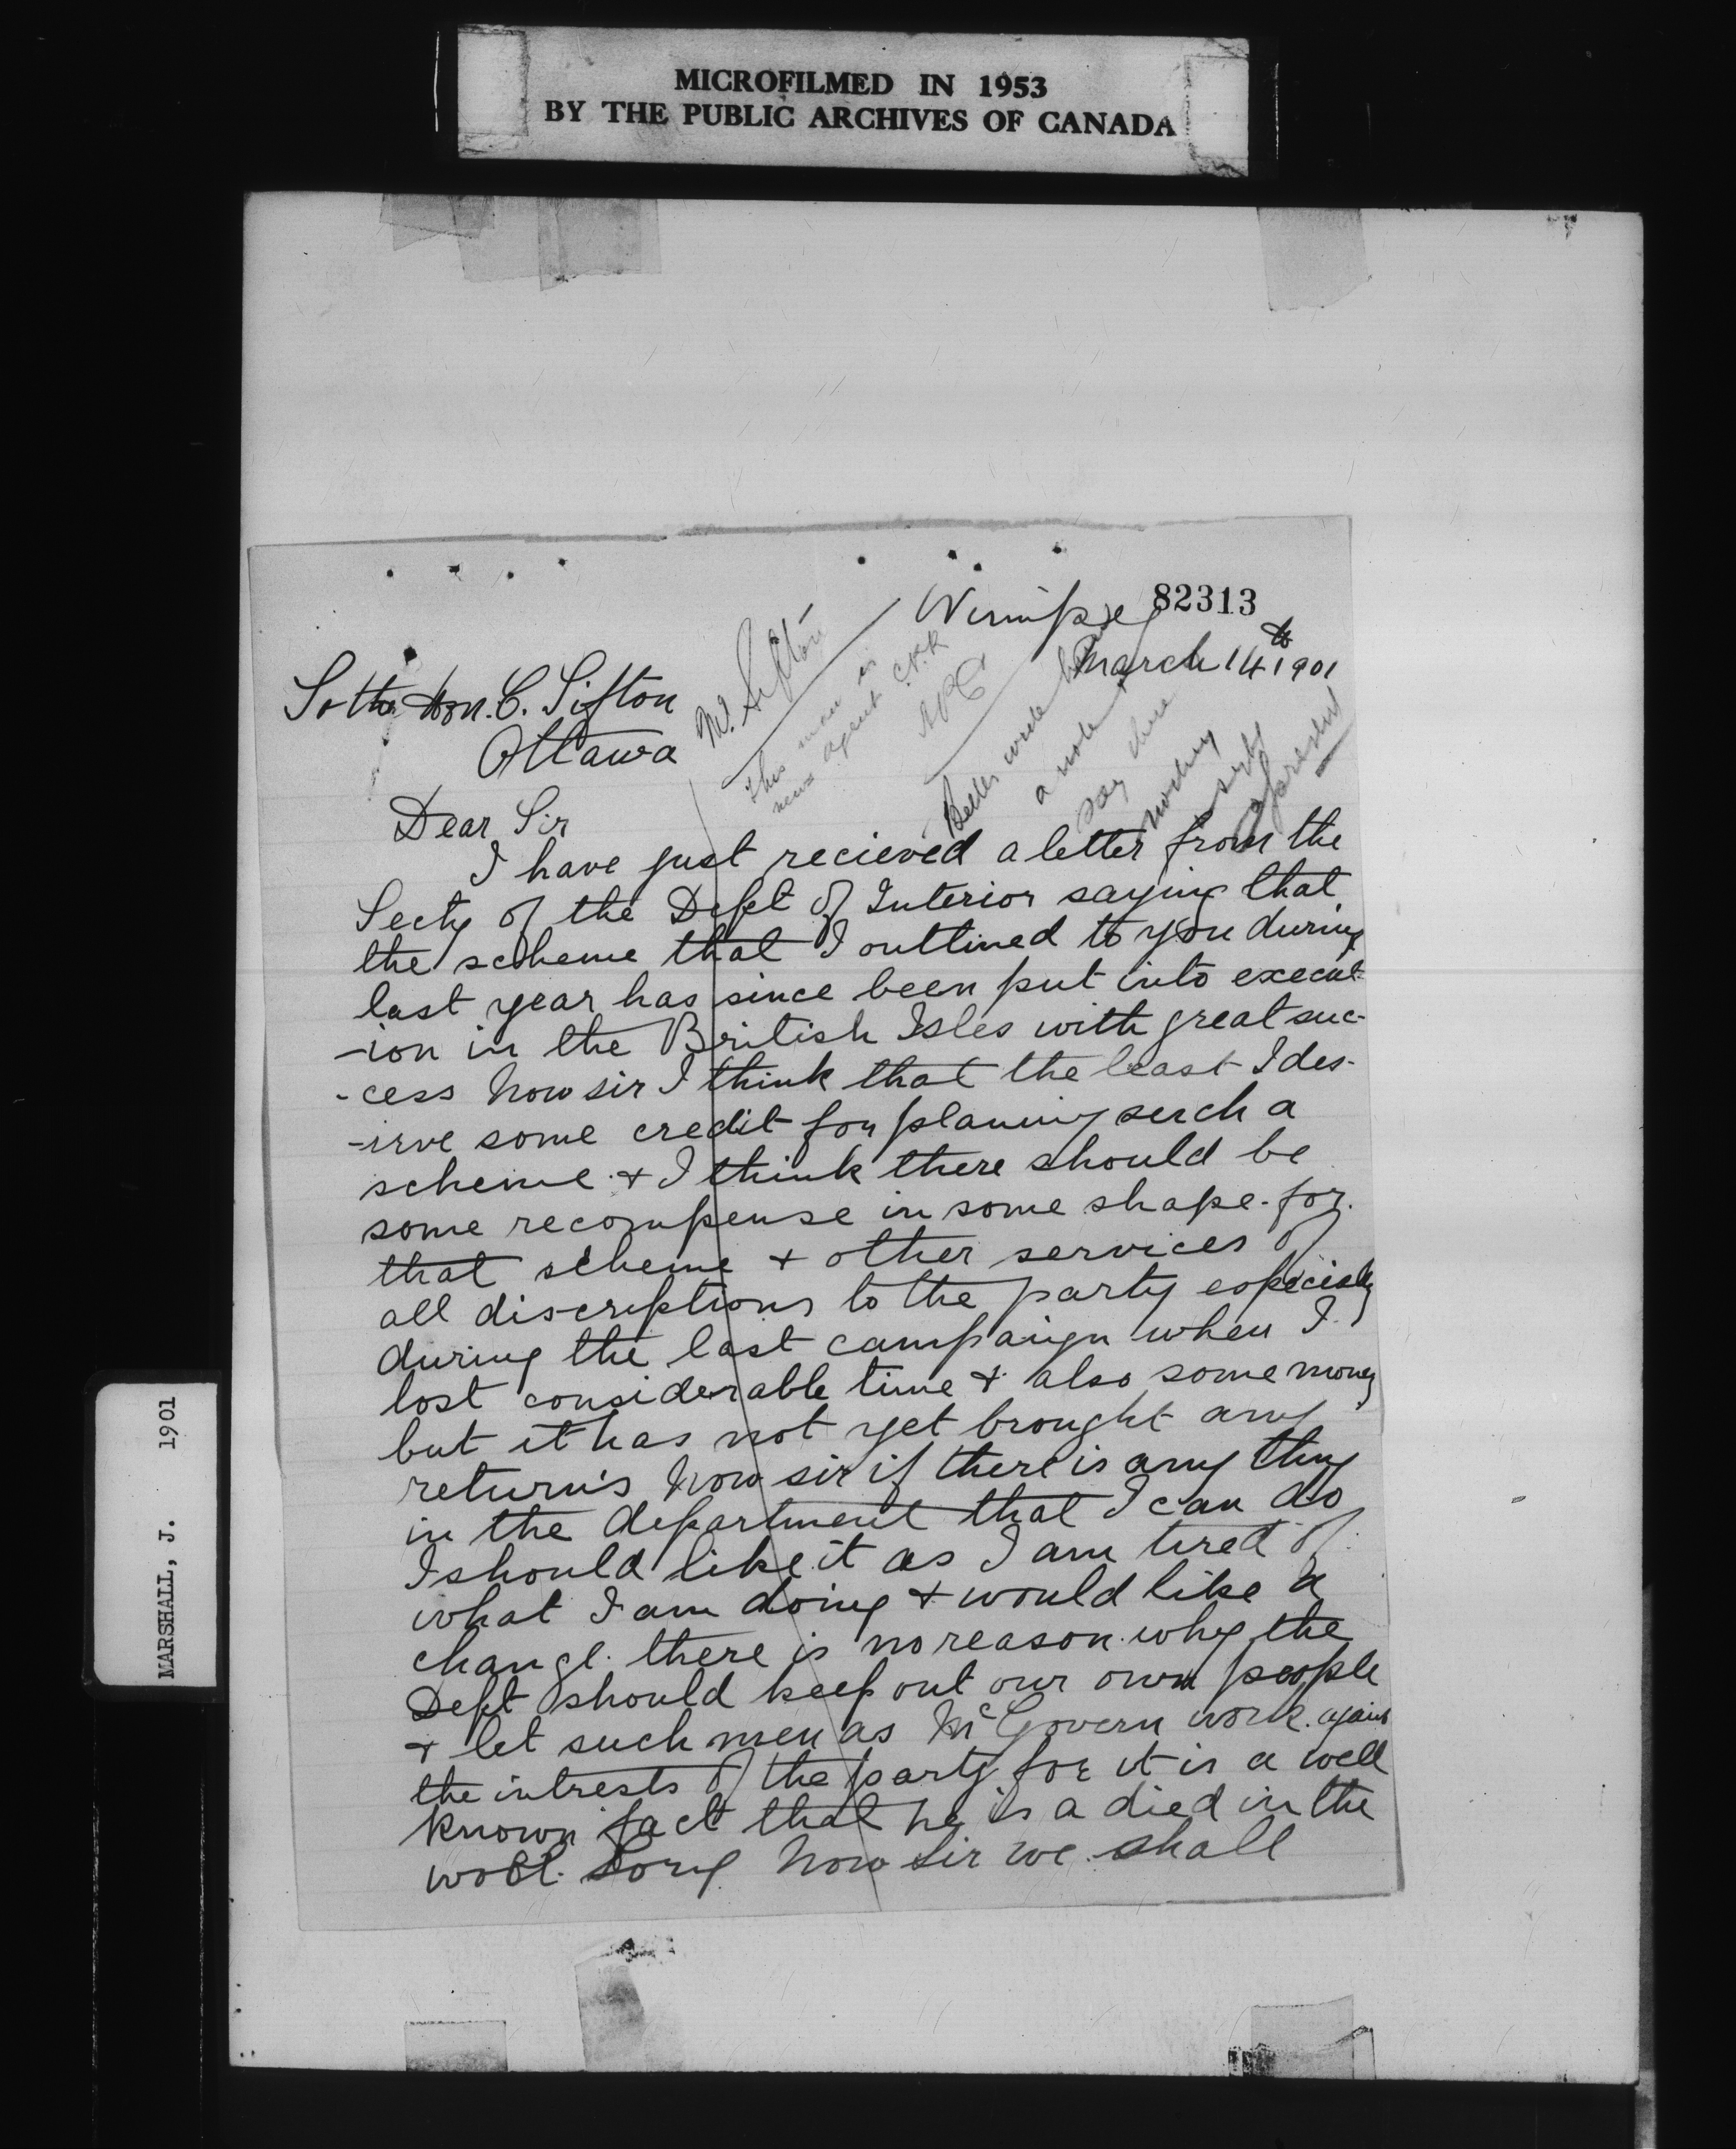 MICROFILMED IN 1953
BY THE PUBLIC ARCHIVES OF CANADA
82313
Winnipeg
March 14th 1901
To the Hon. C. Sifton
Ottawa
Mr. Sifton
This man is
news agent C.P.R.
Better write him
a note &
say there
nothing
just
at present
Dear Sir
I have just recieved a letter from the
Secty of the Dept of Interior saying that
the scheme that I outlined to you during
last year has since been put into execut
-ion in the British Isles with great suc-
-cess Now sir I think that the least I des-
-irve some credit for planing such a
scheme & I think there should be
some recompense in some shape for
that scheme & other services of
all discriptions to the party especially
during the last campaign when I
lost considerable time & also some money
but it has not yet brought any
return's Now sir if there is any thing
in the department that I can do
I should like it as I am tired of
what I am doing & would like a
change. there is no reason why the
Dept should keep out our own people
& let such men as McGovern work against
the intrests of the party for it is a well
known fact that he is a died in the
wool Tory Now Sir we shall
MARSHALL, J. 1901